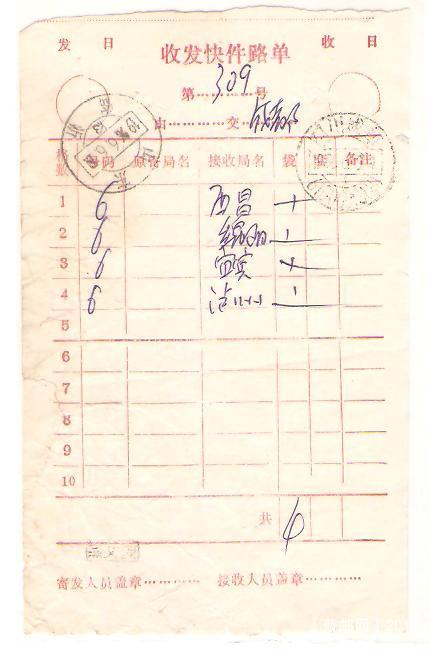 发 日 收发快件路单 收 日
第 309 号
由 交 成都
格数 号码 原寄局名 接收局名 袋 套 备注
1 6 西昌 一
2 6 绵阳 一
3 6 宜宾 一
4 6 泸州 一
5
6
7
8
9
10
共 4
寄发人员盖章 接收人员盖章